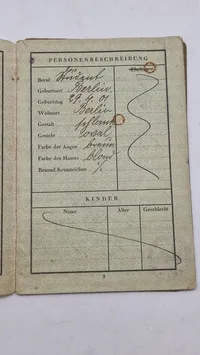 PERSONENBESCHREIBUNG
Ehefrau
Beruf Student
Geburtsort Berlin
Geburtstag 29. 4. 01
Wohnort Berlin
Gestalt schlank
Gesicht oval
Farbe der Augen braun
Farbe des Haares blond
Besond. Kennzeichen %
KINDER
Name Alter Geschlecht